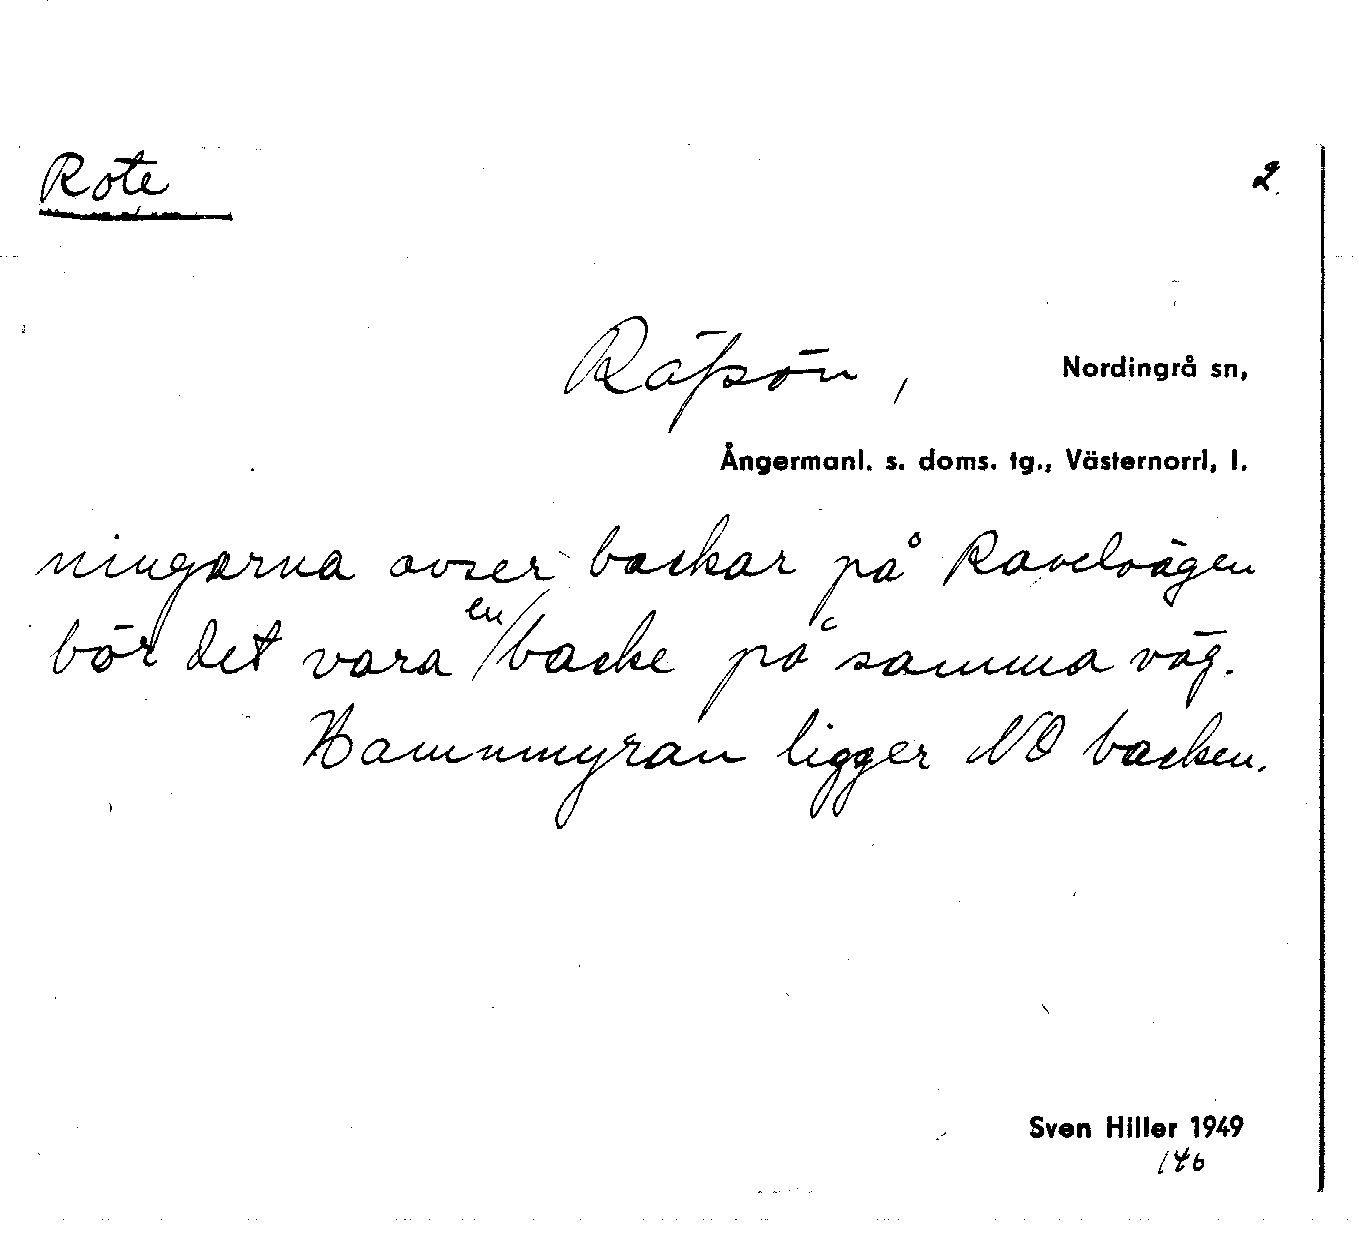 Rote
2.
Räfsön,
Nordingrå sn,
Ångermanl. s. doms. tg., Västernorrl, l.
ningarna avser backar på Ravelvägen
bör det vara en/backe på samma väg.
Hamnmyran ligger NO backen.
Sven Hiller 1949
146